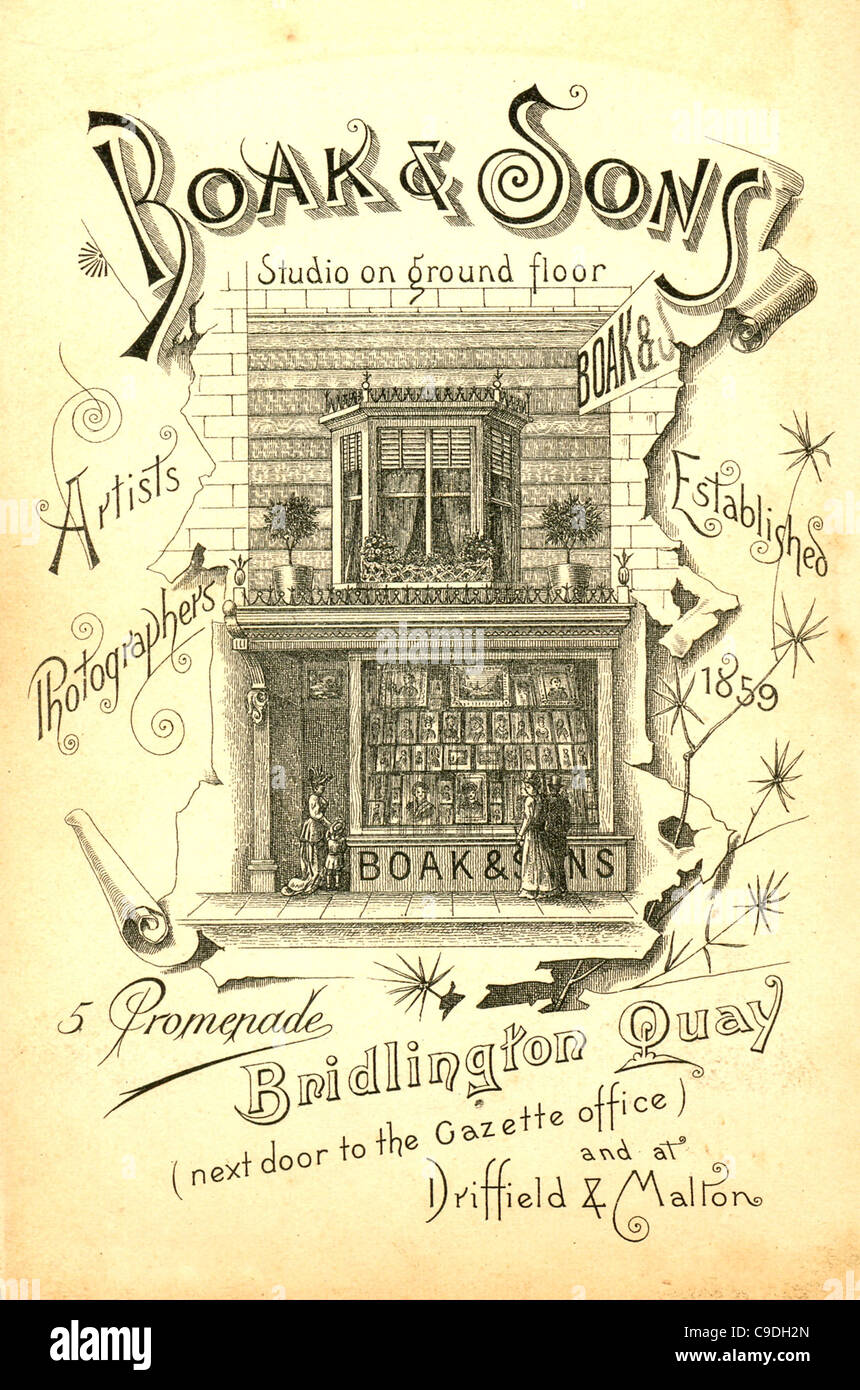 BOAK & SONS
Studio on ground floor
BOAK & S
Artists
Photographers
Established
1859
BOAK & S NS
5 Promenade
Bridlington Quay
(next door to the Gazette office)
and at
Driffield & Malton
alamy
Image ID: C9DH2N
www.alamy.com